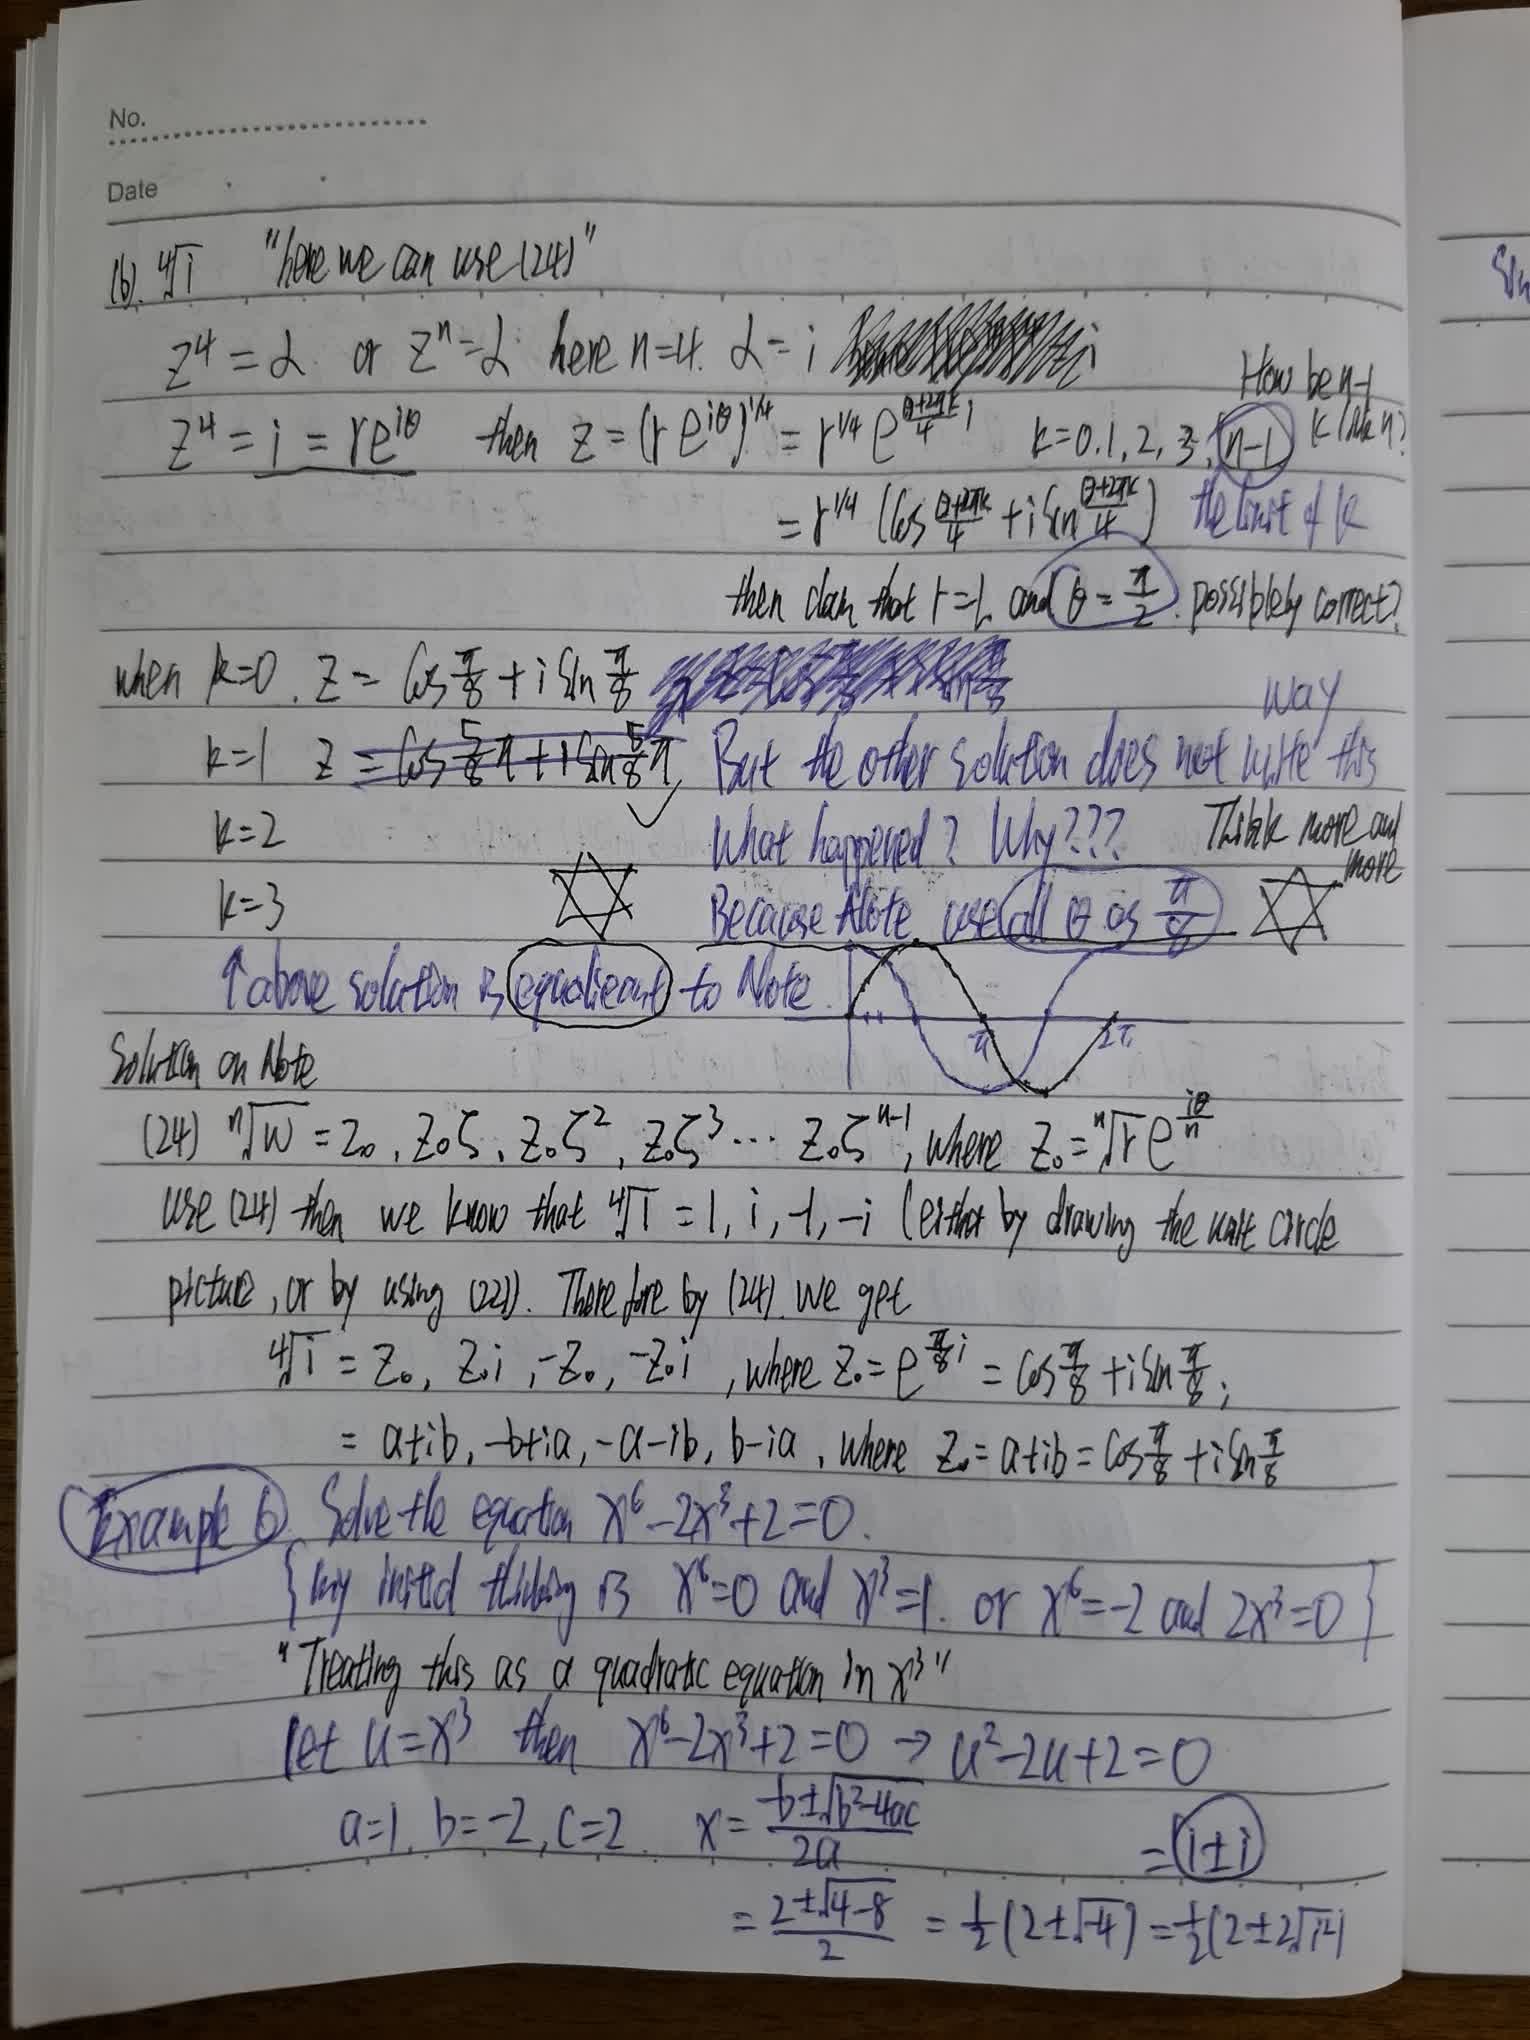 No.
Date
(b). ∜i "here we can use (24)"
z⁴ = α. or zⁿ = α. here n=4. α = i
z⁴ = i = re^{iθ} then z = (re^{iθ})^{1/4} = r^{1/4} e^{\frac{θ+2πk}{4} i} k=0.1, 2, 3, n-1
How be n-1
k like n?
= r^{1/4} (cos \frac{θ+2πk}{4} + i sin \frac{θ+2πk}{4}) the limit of k
then claim that r=1. and θ = \frac{π}{2}. possiblely correct?
when k=0. z = cos \frac{π}{8} + i sin \frac{π}{8}
k=1 z = cos \frac{5}{8}π + i sin \frac{5}{8}π
But the other solution does not write this way
k=2 What happened? Why??? Think more and more
k=3 Because Note use all θ as \frac{π}{8}
↑ above solution is equalieant to Note.
π 2π
Solution on Note
(24) ⁿ√w = z₀, z₀ζ, z₀ζ², z₀ζ³ ··· z₀ζ^{n-1}, where z₀ = ⁿ√r e^{\frac{iθ}{n}}
use (24) then we know that ∜1 = 1, i, -1, -i (either by drawing the unit circle
picture, or by using (22)). Therefore by (24). we get
∜i = z₀, z₀i, -z₀, -z₀i, where z₀ = e^{\frac{π}{8}i} = cos \frac{π}{8} + i sin \frac{π}{8};
= a+ib, -b+ia, -a-ib, b-ia, where z₀ = a+ib = cos \frac{π}{8} + i sin \frac{π}{8}
Example 6 Solve the equation x⁶ - 2x³ + 2 = 0.
{my initial thinking is x⁶=0 and x³=1. or x⁶=-2 and 2x³=0}
"Treating this as a quadratic equation in x³"
let u = x³ then x⁶ - 2x³ + 2 = 0 → u² - 2u + 2 = 0
a=1, b=-2, c=2. x = \frac{-b±√(b²-4ac)}{2a} = 1±i
= \frac{2±√(4-8)}{2} = \frac{1}{2}(2±√-4) = \frac{1}{2}(2±2√-1)